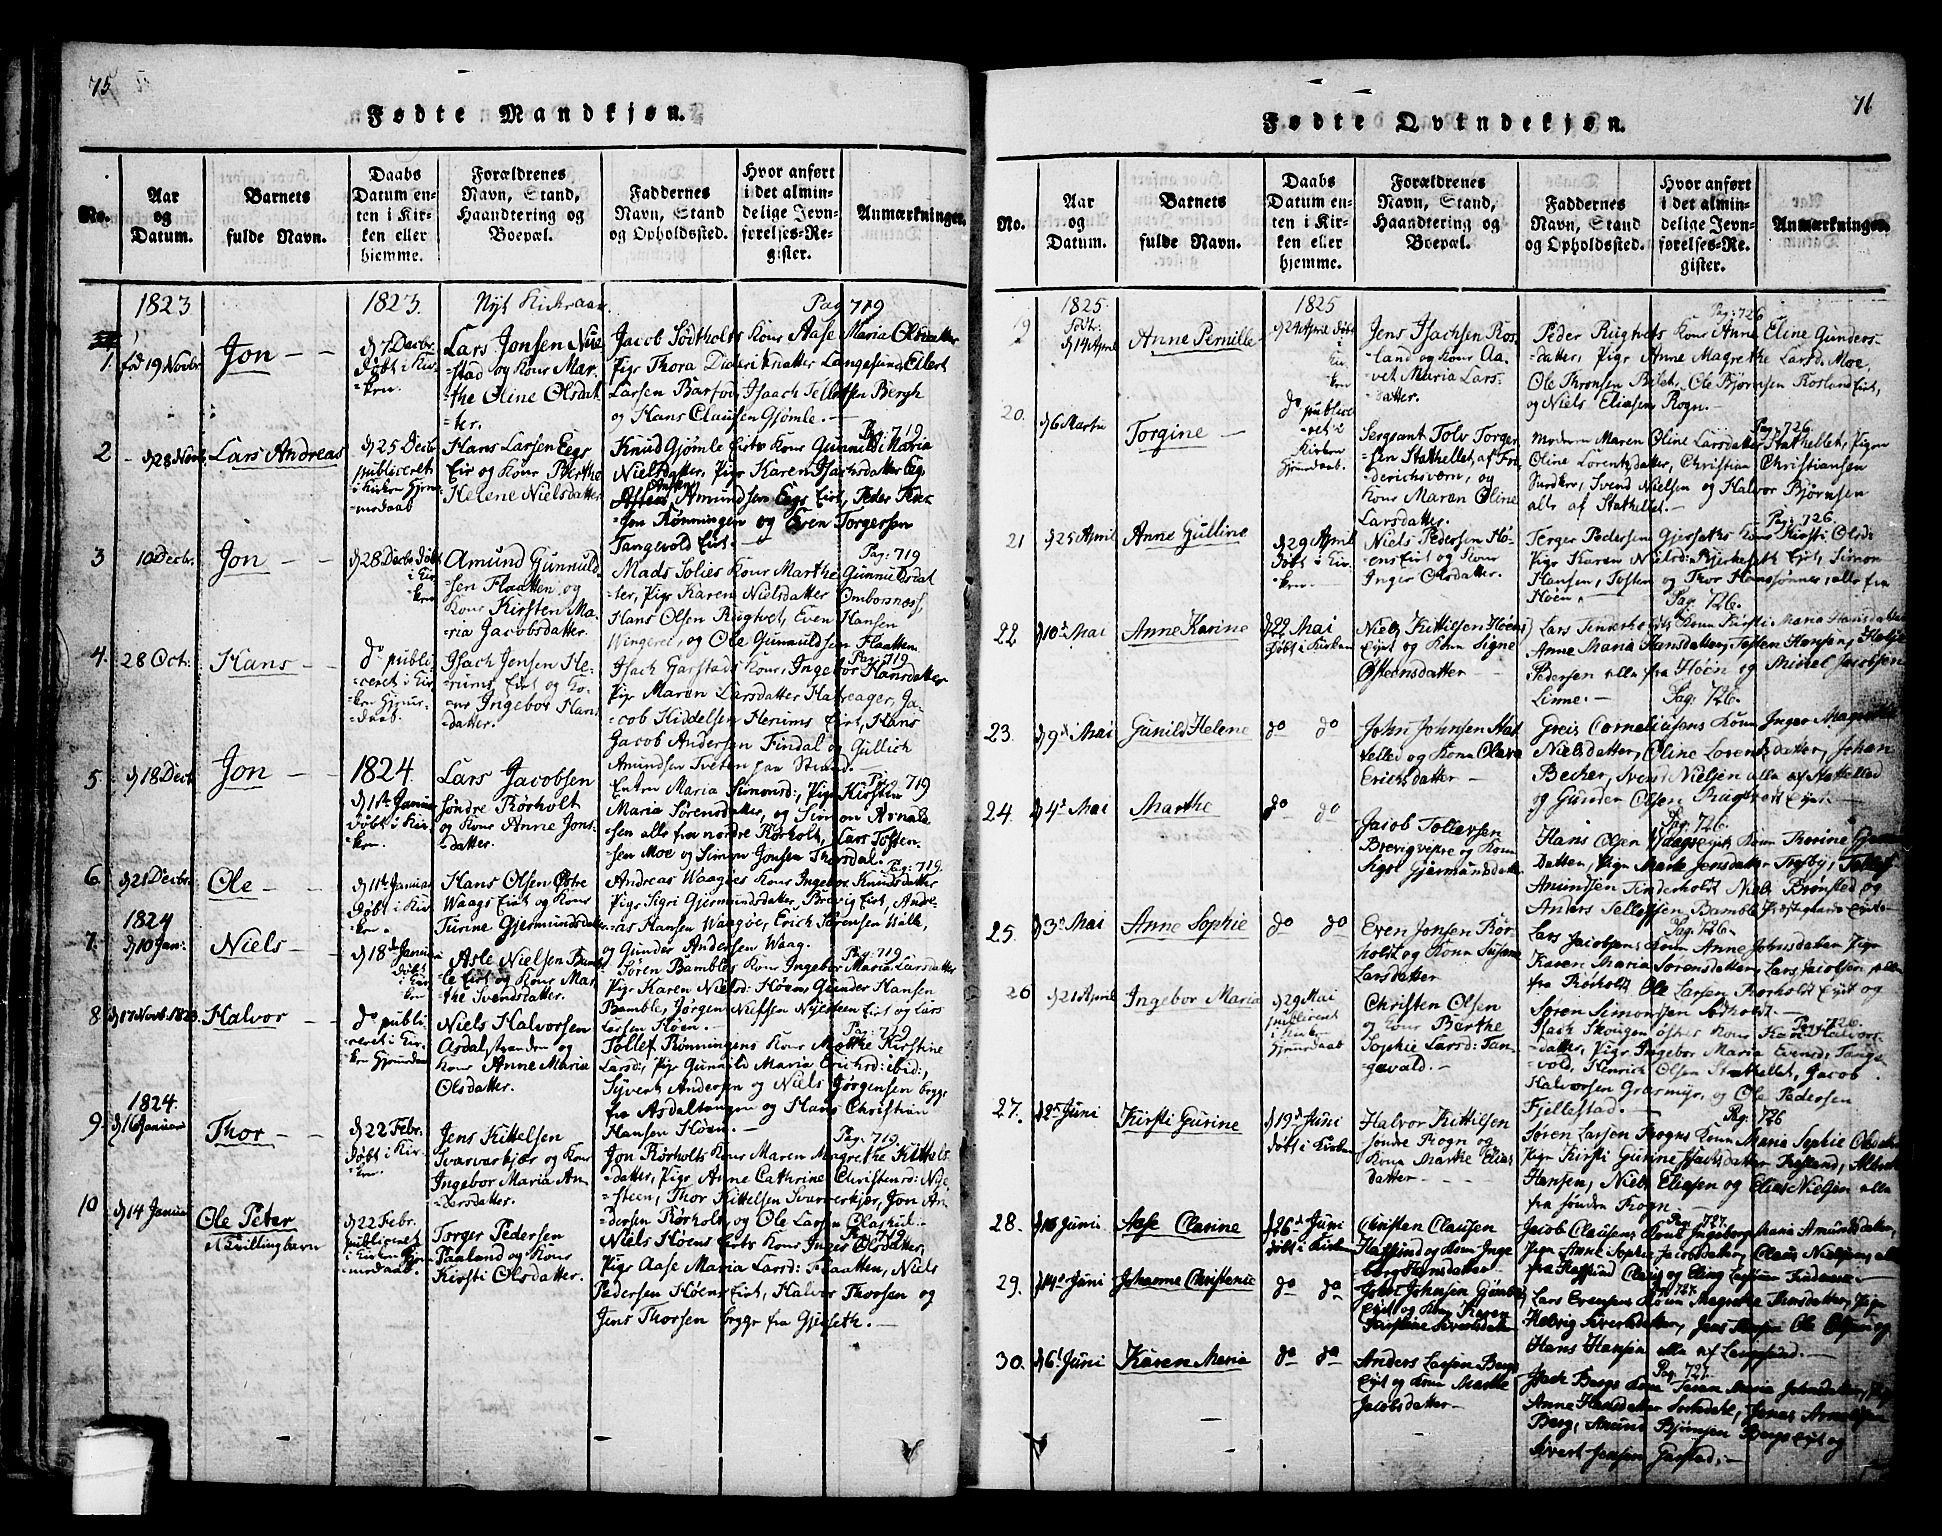 75
Fødte Mandkjøn.
No.
Aar og Datum.
Barnets fulde Navn.
Daabs Datum enten i Kirken eller hjemme.
Forældrenes Navn, Stand, Haandtering og Boepæl.
Faddernes Navn, Stand og Opholdssted.
Hvor anført i det almindelige Jevnførelses-Register.
Anmærkninger.
1823
1823.
Nyt Kirkeaar
Pag 719
1.
fød 19 Novbr
Jon
d 7 Decbr.
døbt i Kir-
ken.
Lars Jonsen
stad og Kone Mar-
the Oline Olsdat
ter.
Jacob Sødtholts Kone Aase Maria Olsdatter
Pige Thora Didericksdatter Langesund, Eilert
Larsen Barfod, Isaach Tellefsen Bergh
og Hans Clausen Gjømle.
2
d 28 Novb.
Lars Andreas
d 25 Decbr
publiceret
i Kirken Hjem-
medaab
Hans Larsen Eegs
Eie og Kone Berthe
Helene Nielsdatter
Pag: 719
Knud Gjømle Eiets Kone Gunnild Maria
Nielsdatter, Pige Karen Isachsdatter Eeg
Amundsen Eegs Eiet, Peder
Jon Rønningen og Even Torgersen
Tangevold Eiet.
3
10 Decbr.
Jon
d 28 Decbr døbt
i Kir
ken
Amund Gunnuld-
sen Flaatten og
Kone Kirsten Ma-
ria Jacobsdatter.
Pag: 719
Mads Solies Kone Marthe Gunnulsdat
ter, Pige Karen Nielsdatter Omborsnæss,
Hans Olsen Rugtvet, Even Hansen
Wingerei, og Ole Gunnuldsen Flaatten.
4.
28 Oct:
Hans
do publi-
ceret i Kir-
ken Hjem-
daab
Isach Jensen He-
rums Eiet og Ko-
ne Ingebor Hans
datter.
Pag: 719
Isach Garstads Kone Ingebor Hansdatter
Pige Maren Larsdatter Hafsager, Ja-
cob Kiddelsen Herums Eiet, Hans
Jacob Andersen Findal og Gullich
Amundsen Tveten paa Strand.
5
d 18 Decbr
Jon
1824.
d 1ste Januar
døbt i Kir-
ken.
Lars Jacobsen
søndre Rørholt
og Kone Anne Jons-
datter.
Pag: 719
Enken Maria Simonsd:, Pige Kirsten
Maria Sørensdatter, og Simon Arnold
sen alle fra nordre Rørholt, Lars Tosten-
sen Moe og Simon Jonsen Thorsdal.
6
d 21 Decbr.
Ole
d 11te Januar
døbt i Kir-
ken.
Hans Olsen Østre
Waags Eiet og Kone
Turine Gjermundsdatter
Pag: 719.
Andreas Waagøes Kone Ingebor Knudsdatter
Pige Sigri Gjermundsdatter, Brevig Eiet, Andre-
as Hansen Waagøe, Erich Sørensen Valle,
og Gunder Andersen Waag.
1824
7.
d 10 Jan:
Niels
d 18de Januar
døbt
i Kir
ken
Asle Nielsen Bamb-
le Eiet og Kone Mar-
the Svendsdatter.
Pag: 719.
Søren Bambles Kone Ingebor Maria Larsdatter
Pige Karen Nielsd: Høen, Gunder Hansen
Bamble, Jørgen Nielsen Nysteen Eiet og Lars
Larsen Høen.
8
d 17 Novb. 1823
Halvor
do publi-
ceret i Kir-
ken Hjemdaab
Niels Halvorsen
Asdalstranden og
Kone Anne Maria
Olsdatter.
Pag: 719
Tollef Rønningens Kone Marthe Kirstine
Larsd:, Pige Gunnild Maria Erichsd: ibid:,
Syvert Andersen og Niels Jørgensen begge
fra Asdaltangen og Hans Christian
Hansen Høen.
1824.
9.
d 16 Januar
Thor
d 22 Febr.
døbt i Kir-
ken.
Jens Kittelsen
Svarverkjær og Kone
Ingebor Maria An-
dersdatter.
Pag: 719.
Jon Rørholts Kone Maren Magrethe Kittels
datter, Pige Anne Cathrine Christensd: Nye
steen, Thor Kittelsen Svarverkjær, Jon An-
dersen Rørholt og Ole Larsen Olaskul.
10
d 14 Januar
Ole Peter
et Tvillingbarn
d 22 Febr.
publiceret
i Kirken Hjem
medaab.
Torger Pedersen
Paaland og Kone
Kirsti Olsdatter.
Pag: 719.
Niels Høens Eiets Kone Inger Olsdatter,
Pige Aase Maria Larsd: Flaatten, Niels
Pedersen Høens Eiet, Halvor Thorsen og
Jens Thorsen begge fra Gjerseth.
76
Fødte Qvindekjøn.
No.
Aar og Datum.
Barnets fulde Navn.
Daabs Datum enten i Kirken eller hjemme.
Forældrenes Navn, Stand, Haandtering og Boepæl.
Faddernes Navn, Stand og Opholdssted.
Hvor anført i det almindelige Jevnførelses-Register.
Anmærkninger.
1825.
1825
19
født
d 14 April
Anne Pernille
d 24 April døbt
i
Kir
ken
Jens Isachsen Ros-
land og Kone Aa-
vet Maria Lars-
datter.
Pag: 726
Peder Rugtvets Kone Anne Eline Gunders-
datter, Pige Anne Magrethe Larsd: Moe,
Ole Thronsen Bilet, Ole Bjørnsen Rosland Eiet,
og Niels Eliasen Rogn.
20.
d 6 Martii
Torgine
do publice
ret i
Kirken
Hjemdaab.
Sergeant Tolv Torger-
sen Stathellet, af Fre-
derichsværn, og
Kone Maren Oline
Larsdatter.
Pag: 726.
Moderen Maren Oline Larsdatter Stathellet, Pigen
Oline Lorentzdatter, Christian Christiansen
Svend Nielsen og Halvor Bjørnsen
alle af Stathellet.
21
d 25 April
Anne Gulline
d 29 April
døbt i Kir-
ken.
Niels Pedersen Hø-
ens Eiet og Kone
Inger Olsdatter.
Pag: 726.
Terger Pedersen Gjerseths Kone Kirsti Olsd:
Pige Karen Nielsd: Bjerkeseth Eiet, Simon
Hansen, Tosten og Thor Hanssønner, alle fra
Høen.
22
d 10de Mai
Anne Karine
d 22 Mai
døbt i Kirken
Niels Kittilsen Høens
Eiet og Kone Signe
Ostensdatter
Pag. 726.
Lars Kone Kirsti Maria Hansdatter
Anne Maria Hansdatter, Tosten Hansen,
Pedersen alle fra Høen og Mickel Jacobsen
Linne.
23.
d 9de Mai
Gunild Helene
do do
John Johnsen Stat
hellet og Kone Olava
Erichsdatter
Pag. 726.
Greis Corneliusens Kone Inger Magrethe
Nielsdatter, Oline Lorentzdatter, Johan
Becher, Svend Nielsen alle af Stathellet
og Gunder Olsen Rugtvert Eiet.
24.
d 4de Mai
Marthe
do do
Jacob Tollevsen
Brevigvejre og Kone
Sigri Gjermunsdatter
Pag. 726.
Hans Olsen Waags Eiet Kone Thorine Gjermun
datter, Pige Marte Jensdatter Trosby, Tollef
Amundsen Tinderholt, Niels Brønsted og
Anders Tellefsen Bamble Præstegaards Eiet.
25.
d 3de Mai
Anne Sophie
do do
Even Jonsen Rør-
holt og Kone Susane
Larsdatter
Pag. 726.
Lars Jacobsens Kone Anne Johnsdatter, Pige
Karen Maria Sørensdatter, Lars Jacobsen alle
fra Rørholt, Ole Larsen Rørholt Eiet og
Søren Simonsen Sødtholt.
26
d 21 April
Ingebor Maria
d 29 Mai
publiceret
i Kirk.
Hjemdaab
Christen Olsen
og Kone Berthe
Sophie Larsd: Tan-
gevald.
Pag: 726.
Isach Skougen østre Kone Karen Halvors-
datter, Pige Ingebor Maria Evensd: Tange-
vold, Hinrich Olsen Stathellet, Jacob
Halvorsen Grasmyr, og Ole Pedersen
Fjellestad.
27.
d 2den Juni
Kirsti Gurine
d 19de Juni
døbt i Kirken
Halvor Kittilsen
søndre Rogn og
Kone Marthe Elias
datter
Pag: 726
Søren Larsen Rogns Kone Maria Sophie Olsdatter
Pige Kirsti Gurine Isachsdatter
Hansen, Niels Eliasen og Elias Nielsen alle
fra søndre Rogn.
28.
d 10 Junii
Aase Clarine
d 26de Juni
døbt i Kirken
Christen Clausen
Hafsund og Kone Inge-
borg Hansdatter
Pag. 727.
Jacob Clausens Kone Ingeborg Maria Amundsdatter,
Pige Anne Sophie Jacobsdatter, Claus Nielsens, alle
fra Hafsund
29.
d 14de Juni
Johanne Christence
do do
John Johnsen Gjømle
Eiet og Kone Karen
Kirstine Sivertsdatter
Pag. 727.
Lars Evensens Kone Magrethe Thorsdatter, Pige
Hedvig Sivertsdatter, Jens Hansen Ole Olsen og
Hans Hansen alle af Langesund.
30.
d 6t Juni
Karen Maria
do do
Anders Larsen Bergs
Eiet og Kone Marthe
Jacobsdatter
Pag. 727.
Isach Bergs Kone Maria Johnsdatter, Pige
Anne Hansdatter Jonas Arnoldsen
Berg, Amund Bjørnsen Bergs Eiet og
Sivert Jensen Garstad.